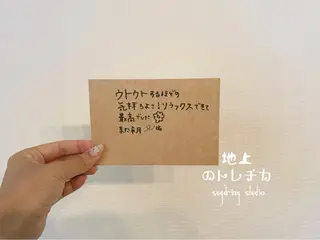 ウトウトするほど
気持ちよく！リラックスできて
最高でした
また来月
地上
のトレチカ